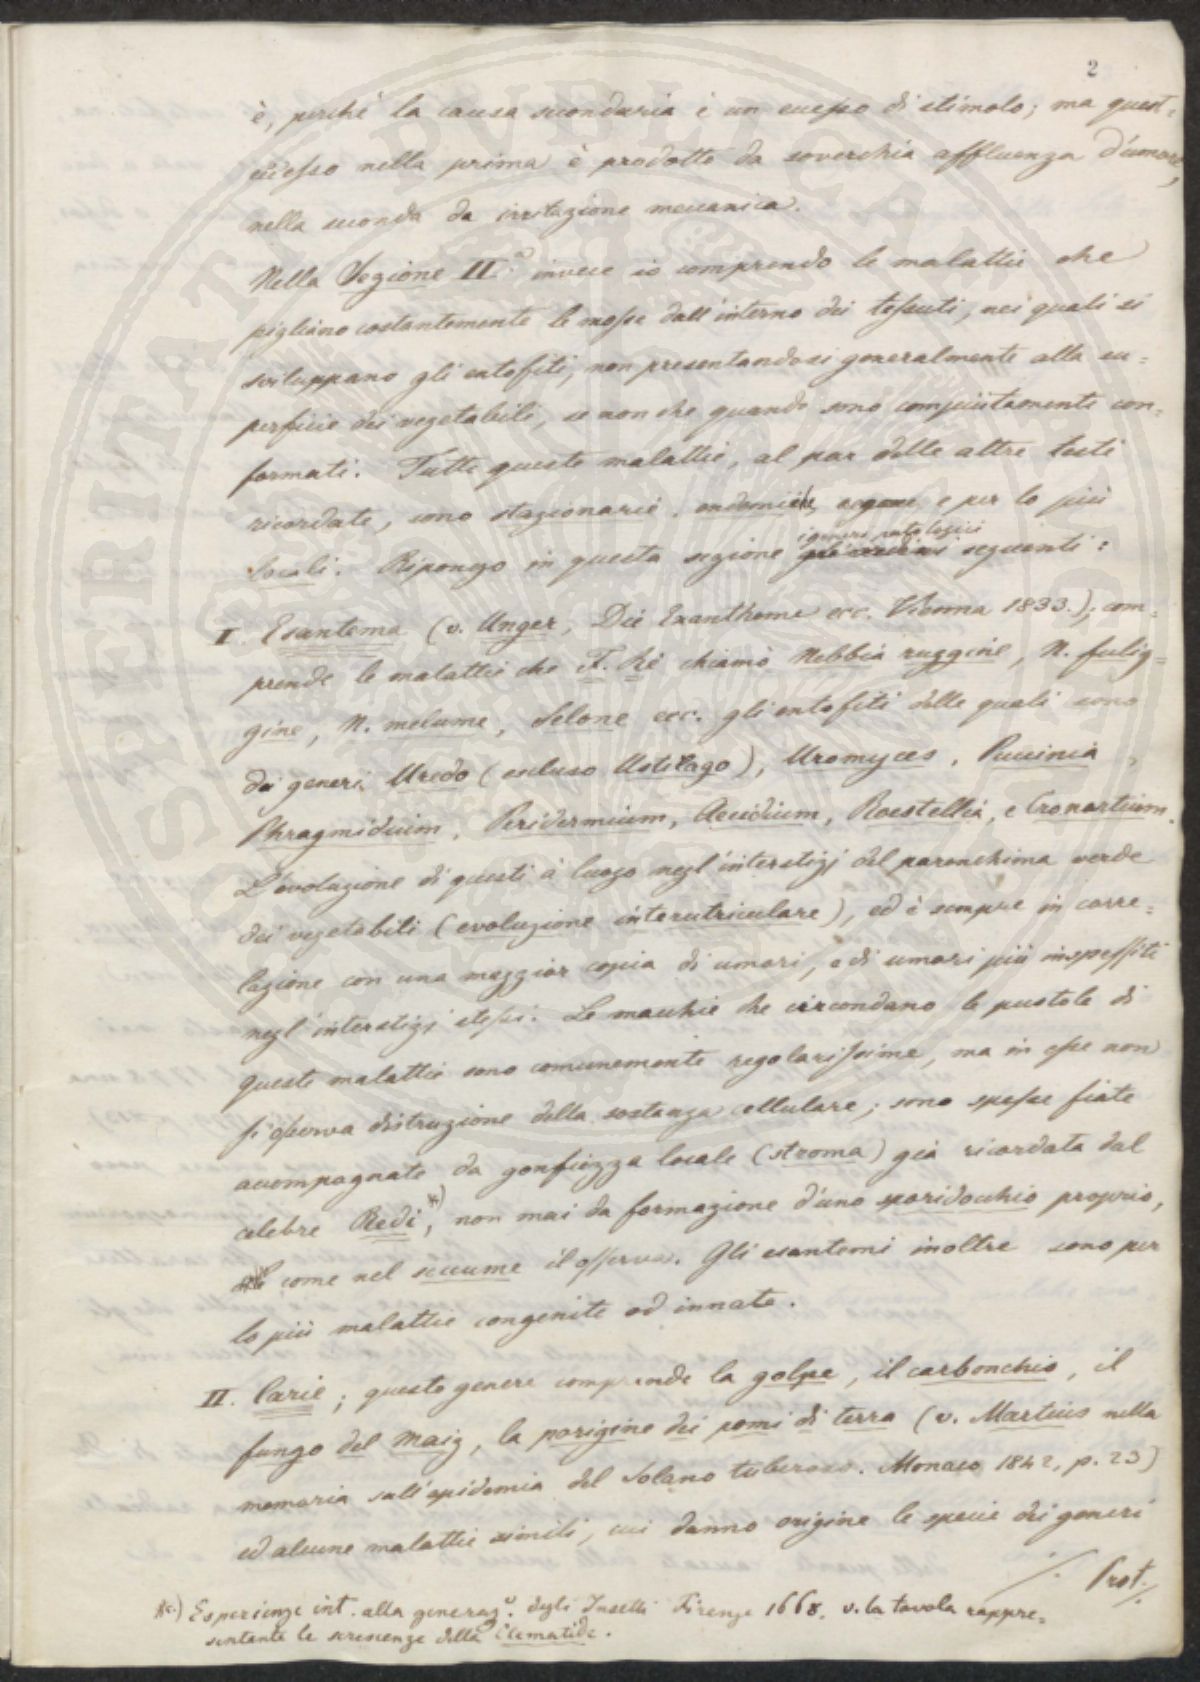 2
è, perchè la causa secondaria è un eccesso di stimolo; ma quest=
eccesso nella prima è prodotto da soverchia affluenza d'umore,
nella seconda da irritazione meccanica.
Nella Sezione II.ª invece io comprendo le malattie che
pigliano costantemente le mosse dall'interno dei tessuti, nei quali si
sviluppano gli entofiti, non presentandosi generalmente alla su=
perficie dei vegetabili, se non che quando sono compiutamente con=
formati. Tutte queste malattie, al par delle altre testè
ricordate, sono stazionarie, endemiche, e per lo più
locali. Ripongo in questa sezione i generi patologici seguenti:
I. Esantema (v. Unger, Die Exantheme ecc. Vienna 1833.); com=
prende le malattie che F. Re chiamò Nebbia ruggine, N. fulig=
gine, N. melume, Selone ecc. gli entofiti delle quali sono
dei generi Uredo (escluso Ustilago), Uromyces, Puccinia,
Phragmidium, Peridermium, Aecidium, Roestelia, e Cronartium.
L'evoluzione di questi à luogo negl'interstizj del parenchima verde
dei vegetabili (evoluzione interutriculare), ed è sempre in corre=
lazione con una maggior copia di umori, e di umori più inspessiti
negl'interstizj stessi. Le macchie che circondano le pustole di
queste malattie sono comunemente regolarissime, ma in esse non
si osserva distruzione della sostanza cellulare; sono spesse fiate
accompagnate da gonfiezza locale (stroma) già ricordata dal
celebre Redi *), non mai da formazione d'uno sporidochio proprio,
come nel seccume si osserva. Gli esantemi inoltre sono per
lo più malattie congenite od innate.
II. Carie; questo genere comprende la golpe, il carbonchio, il
fungo del maiz, la porrigine dei pomi di terra (v. Martius nella
memoria sull'epidemia del Solano tuberoso. Monaco 1842, p. 23)
ed alcune malattie simili, cui danno origine le specie dei generi
./. Prot./.
*) Esperienze int. alla generaz.e degli Insetti Firenze 1668. v. la tavola rappre=
sentante le screscenze della Clematide.